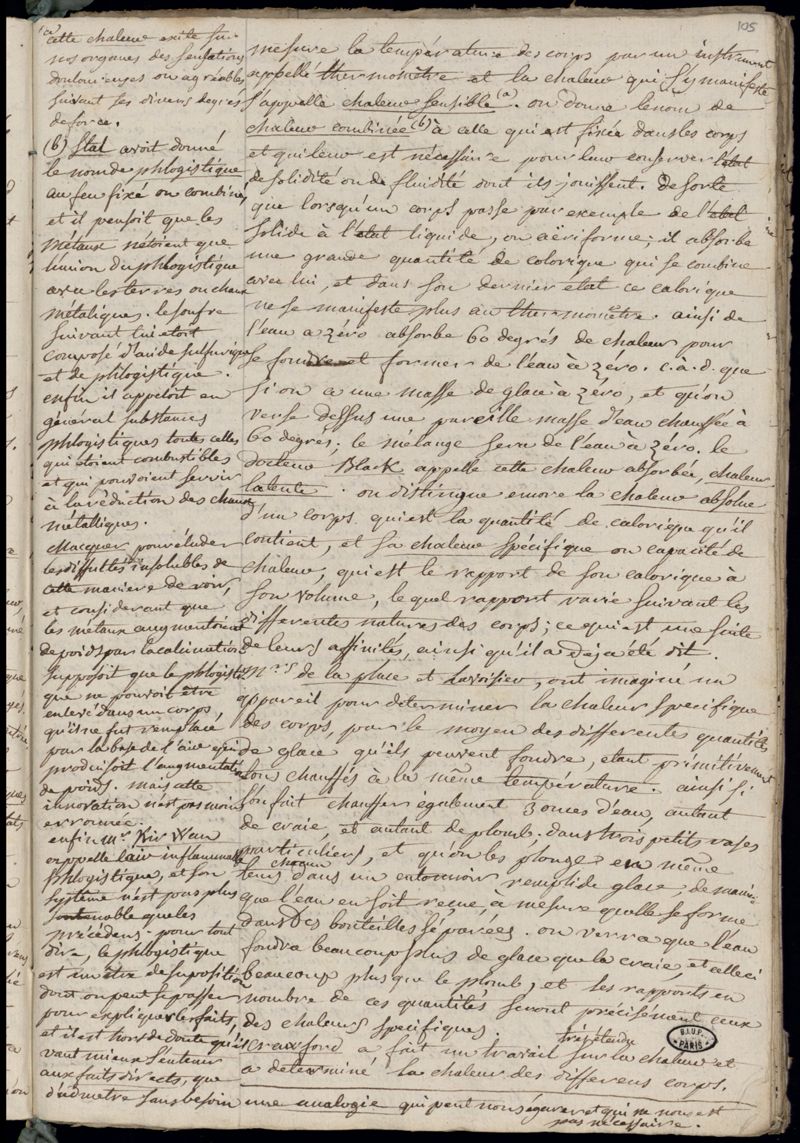 105
(a)
cette chaleur excite sur
nos organes des sensations
douloureuses ou agréables
suivant ses divers degrés
de force.
(b) Stal avoit donné
le nom de phlogistique
au feu fixé ou combiné,
et il pensoit que les
métaux n'étoient que
l'union du phlogistique
avec les terres ou chaux
métalliques. le soufre
suivant lui étoit
composé d'acide sulfurique
et de phlogistique.
enfin il appeloit en
général substances
phlogistiques toutes celles
qui étoient combustibles
et qui pouvoient servir
à la réduction des chaux
métalliques.
Macquer pour éluder
les difficultés insolubles de
cette maniere de voir,
et considerant que
les métaux augmentoient
de poids par la calcination
supposoit que le phlogisti-
que ne pouvoit être
enlevé dans un corps
qu'il ne fut remplacé
par la base de l'air qui
produisoit l'augmentation
de poids. mais cette
innovation n'est pas moins
erronnée.
enfin mr. Kirwan
appelle l'air inflammable
phlogistique, et son
système n'est pas plus
soutenable que les
précédens. pour tout
dire, le phlogistique
est un être de suposition
dont on peut se passer
pour expliquer les faits,
et il est hors de doute qu'il
vaut mieux s'en tenir
aux faits directs, que
d'admetre sans besoin
mesure la température des corps par un instrument
appellé thermomètre et la chaleur qui s'y manifeste
s'appelle chaleur sensible (a). on donne le nom de
chaleur combinée (b) à celle qui est fixée dans les corps
et qui leur est nécessaire pour leur conserver l'état
de solidité ou de fluidité dont ils jouissent. de sorte
que lorsqu'un corps passe par exemple de l'état
solide à l'état liquide, ou aëriforme; il absorbe
une grande quantité de calorique qui se combine
avec lui, et dans son dernier etat ce calorique
ne se manifeste plus au thermomètre. ainsi de
l'eau a zéro absorbe 60 degrés de chaleur pour
se fondre et former de l'eau à zéro. c.a.d. que
si on a une masse de glace à zéro, et qu'on
verse dessus une pareille masse d'eau chauffée à
60 degrés; le mélange sera de l'eau à zéro. le
docteur Black appelle cette chaleur absorbée, chaleur
latente. on distingue encore la chaleur absolue
d'un corps qui est la quantité de calorique qu'il
contient, et sa chaleur spécifique ou capacité de
chaleur, qui est le rapport de son calorique à
son volume, lequel rapport varie suivant les
differentes natures des corps; ce qui est une suite
de leurs affinités, ainsi qu'il a déja été dit.
Mrs de la place et Lavoisier, ont imaginé un
appareil pour determiner la chaleur specifique
des corps, par le moyen des differentes quantités
de glace qu'ils peuvent fondre, etant primitivement
tous chauffés à la même température. ainsi si
l'on fait chauffer également 3 onces d'eau, autant
de craie, et autant de plomb; dans trois petits vases
particuliers, et qu'on les plonge en même
tems chacun dans un entonnoir rempli de glace, de maniere
que l'eau en soit reçue, à mesure qu'elle se forme
dans des bouteilles séparées. on verra que l'eau
fondra beaucoup plus de glace que la craie, et celle ci
beaucoup plus que le plomb, et les rapports en
nombre de ces quantités seront précisement ceux
des chaleurs specifiques.
Crawford a fait un travail très étendu sur la chaleur et
a determiné la chaleur des differens corps.
une analogie qui peut nous égarer et qui ne nous est
pas nécessaire.
B.I.U.P.
PARIS